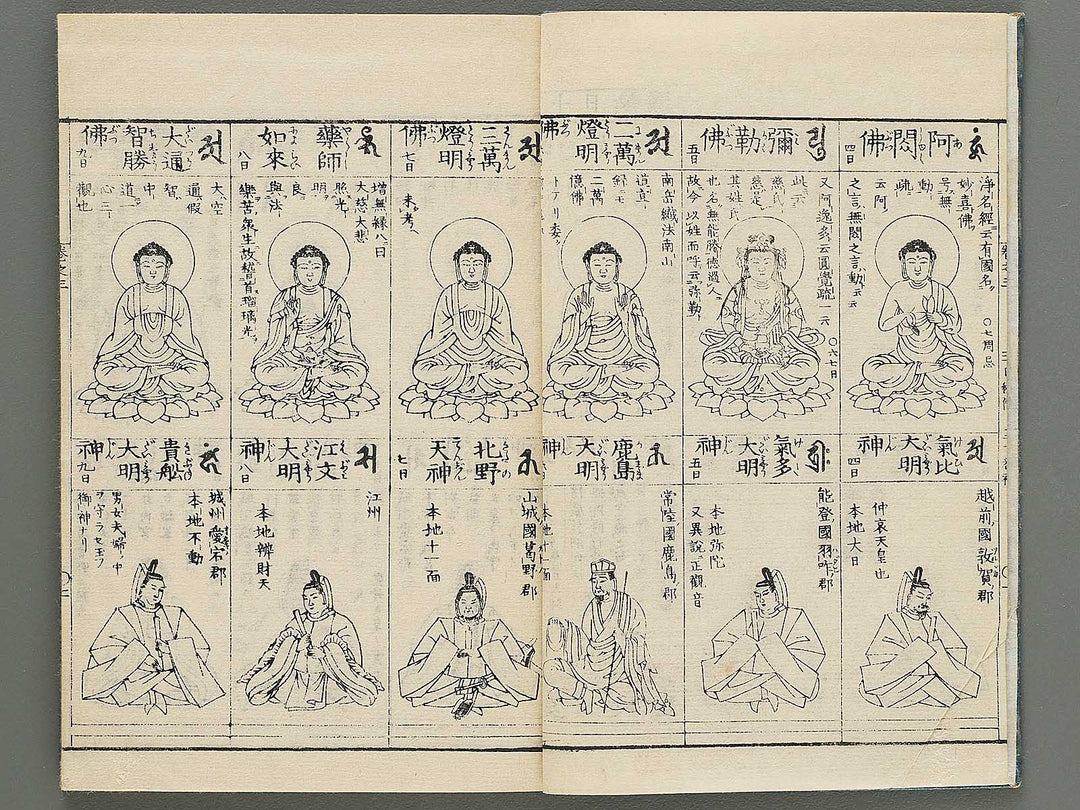 阿閦佛
四日
浄名經云有國名
妙喜佛
号無
動
疏
云阿
之言無閦之言動云云
〇七周忌
彌勒佛
五日
又阿逸多云圓覺疏云
此云
慈氏
慈是
其姓氏
也名無能勝德過人
故今以姓而呼云弥勒
〇六七日
二萬燈明佛
南岳織法南山
道宣
二萬
億佛
二萬燈明佛
七日
未考
藥師如來
八日
增無緣八日
大慈大悲
照光
明
良
與法
樂苦衆生故
瑠璃光
大通智勝佛
九日
大空
通假
智
中
道
心三
觀也
氣比大明神
四日
越前國敦賀郡
仲哀天皇也
本地大日
氣多大明神
五日
能登國羽咋郡
本地弥陀
又異說正觀音
鹿島大明神
常陸國鹿島郡
本地十一面
北野天神
七日
山城國葛野郡
本地十一面
江文大明神
八日
江州
本地辨財天
貴舩大明神
九日
城州愛宕郡
本地不動
男女夫婦ノ中
ヲ守ラセ玉フ
御神ナリ